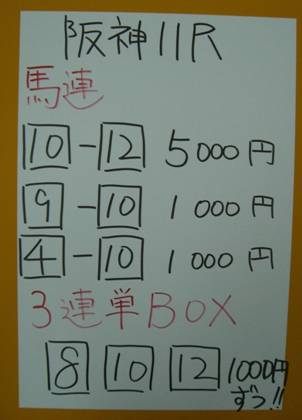 阪神11R
馬連
10-12 5000円
9-10 1000円
4-10 1000円
3連単BOX
8 10 12 1000円
ずつ!!